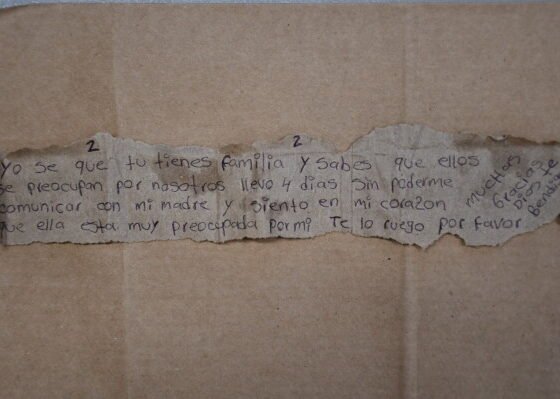 2 2
Yo se que tu tienes familia y sabes que ellos
se preocupan por nosotros llevo 4 dias sin poderme
comunicar con mi madre y siento en mi corazon
que ella esta muy preocupada por mi Te lo ruego por favor
muchas
Gracias
Dios te